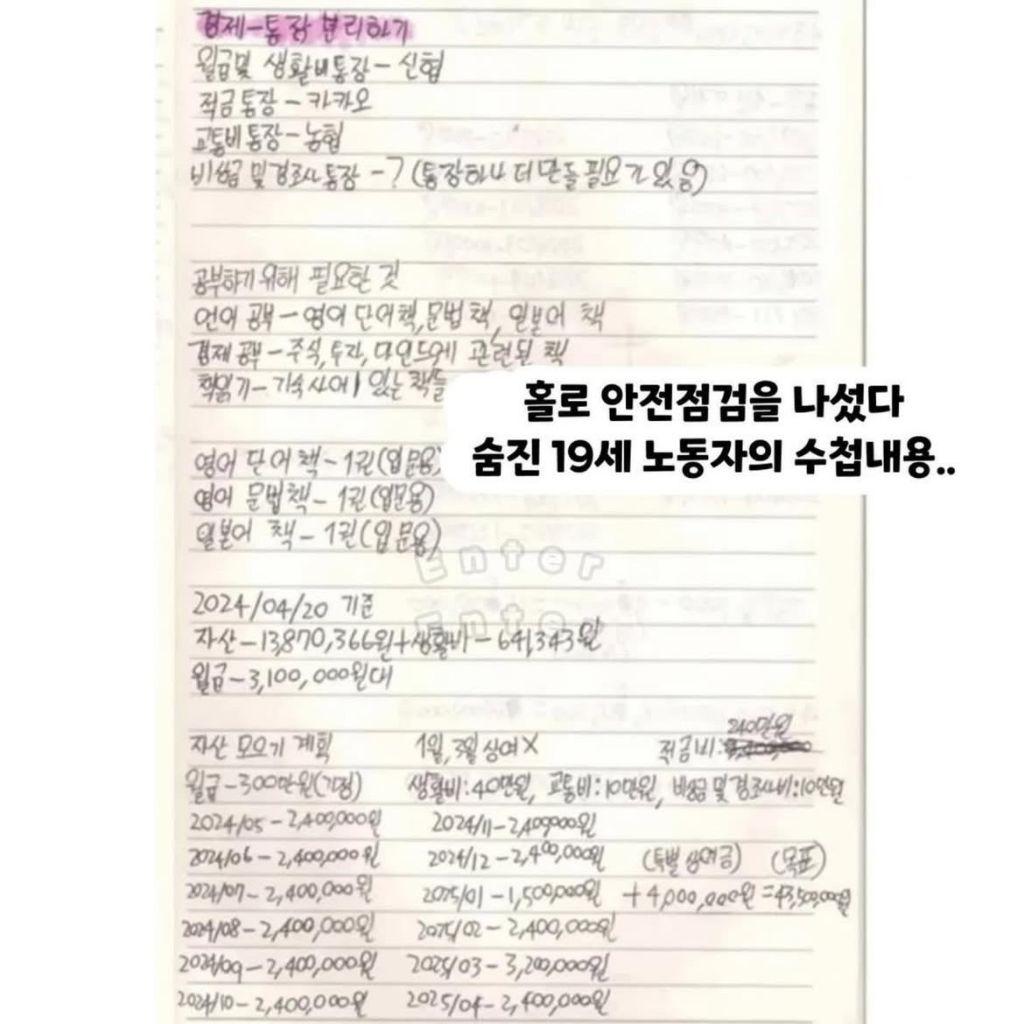 경제-통장 분리하기
월급및 생활비통장-신협
적금통장-카카오
교통비통장-농협
비상금 및 경조사통장-?(통장하나 더 만들 필요가 있음)
공부하기 위해 필요한 것
언어 공부-영어 단어책, 문법 책, 일본어 책
경제 공부-주식, 투자, 마인드에 관련된 책
책읽기-기숙사에 있는 책들
홀로 안전점검을 나섰다
숨진 19세 노동자의 수첩내용..
영어 단어 책-1권(입문용)
영어 문법책-1권(입문용)
일본어 책-1권(입문용)
Enter
Enter
2024/04/20 기준
자산-13,870,366원+생활비-641,343원
월급-3,100,000원대
자산 모으기 계획 1월, 3월 상여X 적금비: 240만원
월급-300만원(가정) 생활비:40만원, 교통비:10만원, 비상금 및 경조사비:10만원
2024/05-2,400,000원 2024/11-2,400,000원
2024/06-2,400,000원 2024/12-2,400,000원 (특별 상여금) (목표)
2024/07-2,400,000원 2025/01-1,500,000원 +4,000,000원=43,500,000원
2024/08-2,400,000원 2025/02-2,400,000원
2024/09-2,400,000원 2025/03-3,200,000원
2024/10-2,400,000원 2025/04-2,400,000원